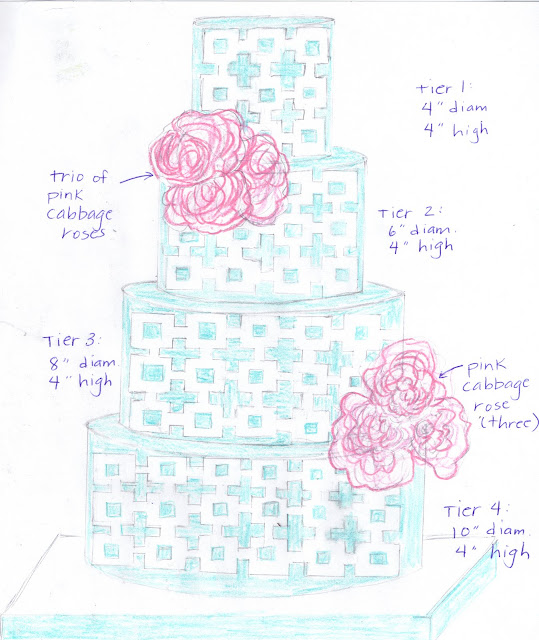 Tier 1:
4" diam
4" high
trio of
pink
cabbage
roses.
Tier 2:
6" diam.
4" high
Tier 3:
8" diam.
4" high
pink
cabbage
rose
(three)
Tier 4:
10" diam.
4" high